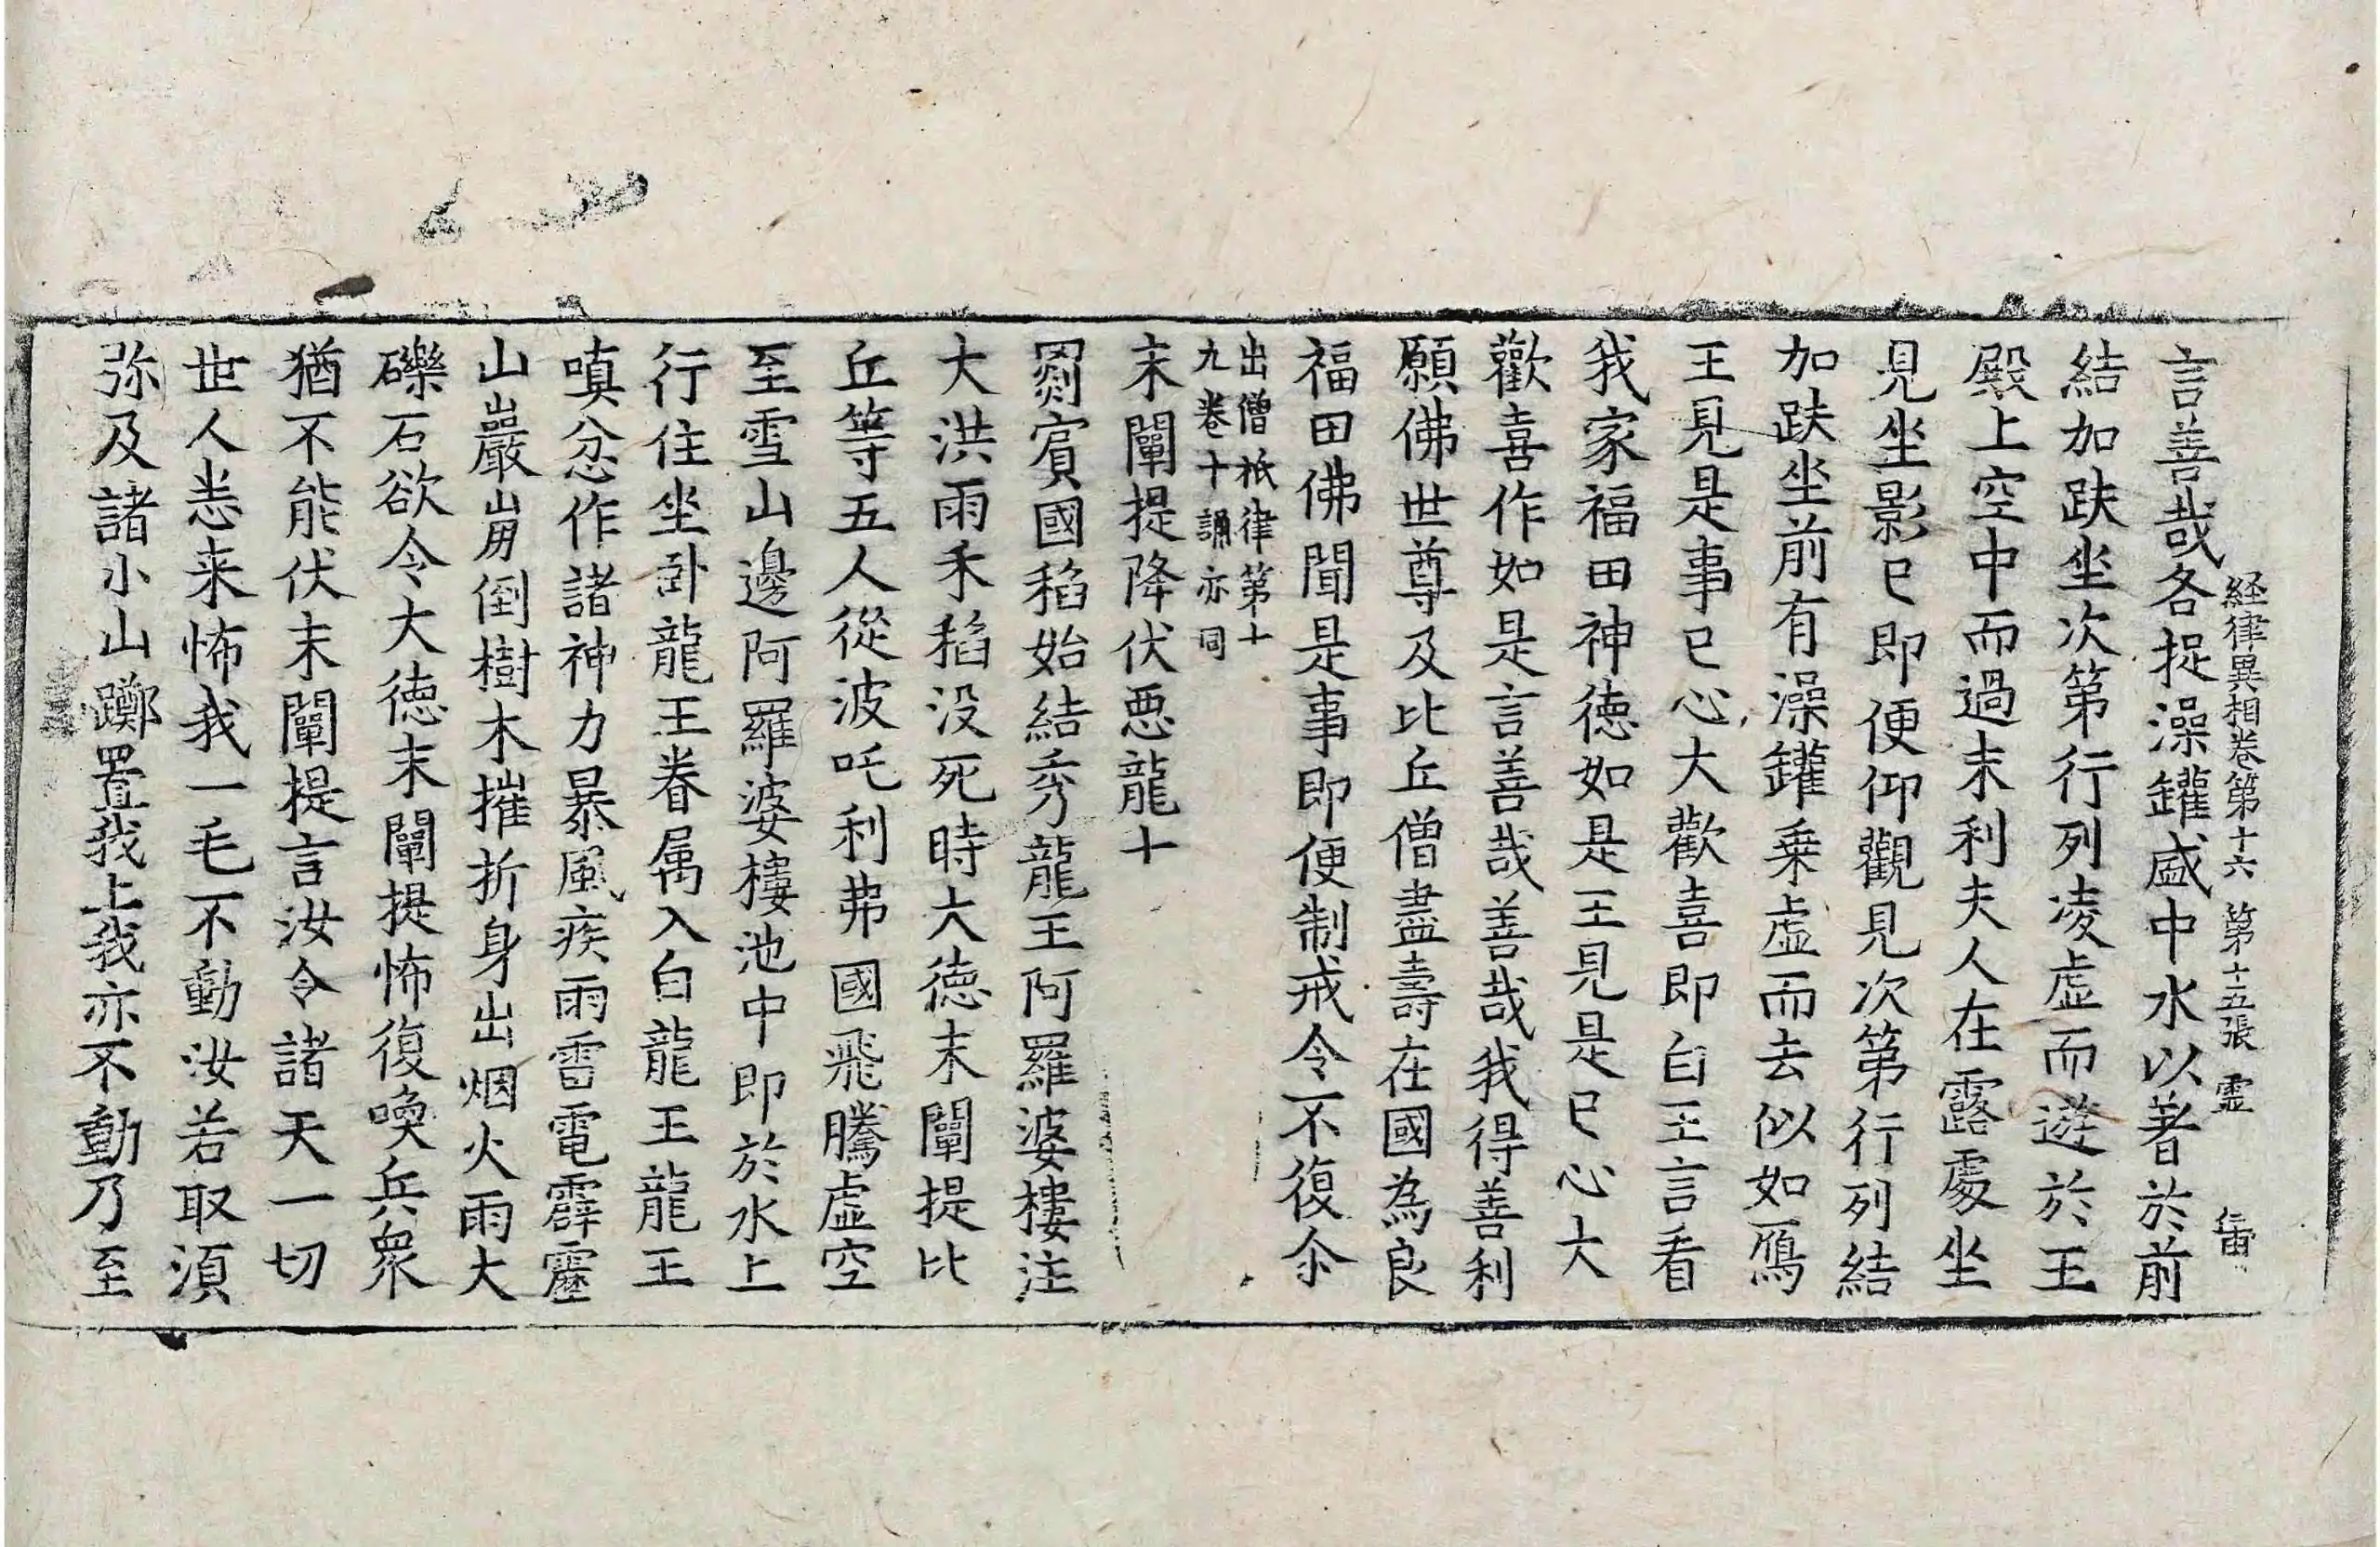 経律異相卷第十六 第十五張 霊
言善哉各捉澡罐盛中水以著於前
結加趺坐次第行列凌虛而逝於王
殿上空中而過末利夫人在露處坐
見坐影已即便仰觀見次第行列結
加趺坐前有澡罐乗虛而去似如鴈
王見是事已心大歡喜即白王言看
我家福田神德如是王見是已心大
歡喜作如是言善哉善哉我得善利
願佛世尊及比丘僧盡壽在國為良
福田佛聞是事即便制戒令不復尒
出僧祇律第十
九卷十誦亦同
末闡提降伏悪龍十
罽賓國稻始結秀龍王阿羅婆樓注
大洪雨禾稻没死時大德末闡提比
丘等五人從波吒利弗國飛騰虛空
至雪山邊阿羅婆樓池中即於水上
行住坐卧龍王眷属入白龍王龍王
嗔忿作諸神力暴風疾雨雷電霹靂
山巖崩倒樹木摧折身出烟火雨大
礫石欲令大德末闡提怖復喚兵衆
猶不能伏末闡提言汝令諸天一切
世人恙来怖我一毛不動汝若取湏
弥及諸小山擲置我上我亦不動乃至